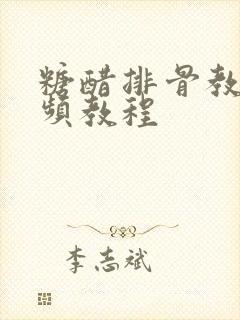 糖醋排骨教
频教程
李志斌